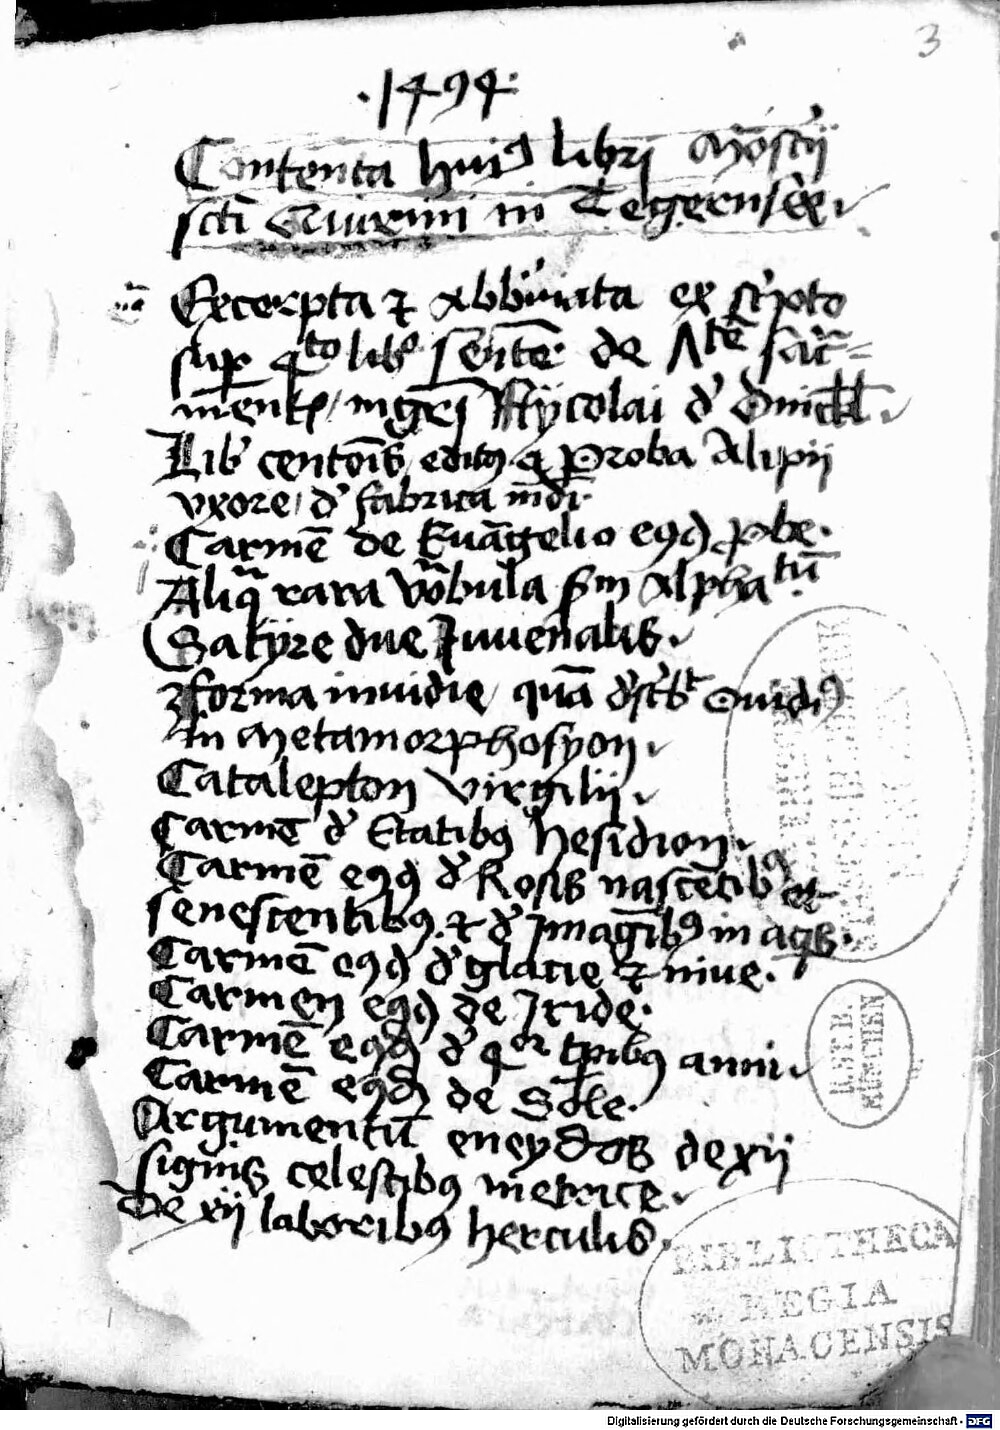 3
·1494·
Contenta huiꝰ libri Moste͞rii
sct̄i Quirini in Tegernsee
Excerpta ⁊ abbr̄uiata ex sc̄ripto
suꝑ q̄rto lib° sente͞ de Alte͞ sac̄ra=
mentꝭ / mḡri Nÿcolai d' Dinckl̄
Lib' cento͞is edit⁹ a Proba Alipii
vxore / d' fabrica mu͞di·
Carme͞ de Eua͞gelio eꝰd ꝓbe·
Aliq̄ rara vo͞bula sm̄ Alphatu͞·
Satÿre due Juuenalis·
forma inuidie / qua͞ d'sc̄bit Ouidiꝰ
In Metamorphosyon
Catalepton Virgilii
Carme͞ d' Etatibꝰ hesidion
Carme͞ eꝰd d' Rosis nasce͞tibꝰ et
senescentibꝰ ⁊ d' Imag͞ibꝰ in aq̄s·
Carme͞ eꝰd d' glacie ⁊ niue·
Carmen eꝰd de Iride·
Carme͞ eꝰd d' qor tp͞ibꝰ anni
Carme͞ eꝰd de Sole·
Argumentu͞ eneydos de xii
signis celestibꝰ metrice
De xii laboribꝰ herculis·
BIBLIOTHECA
REGIA
MONACENSIS
Digitalisierung gefördert durch die Deutsche Forschungsgemeinschaft - DFG